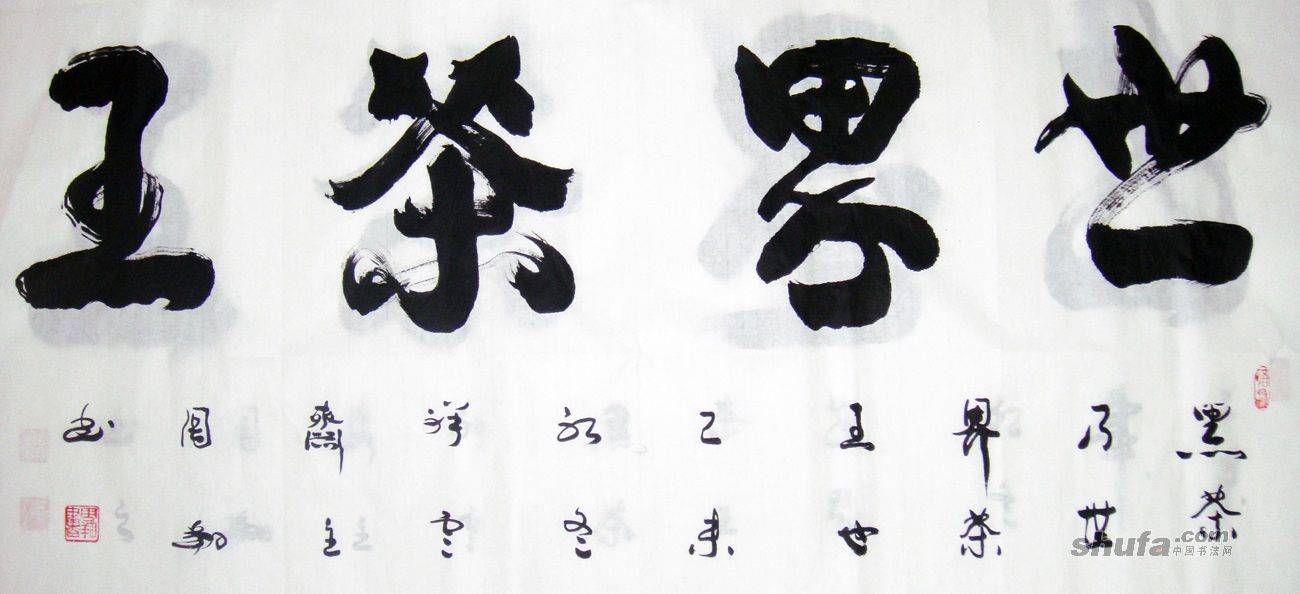 世界茶王
黑茶
乃世
界茶
王也
己未
初冬
祥雲
齋主
周翔
书
shufa.com
中国书法网